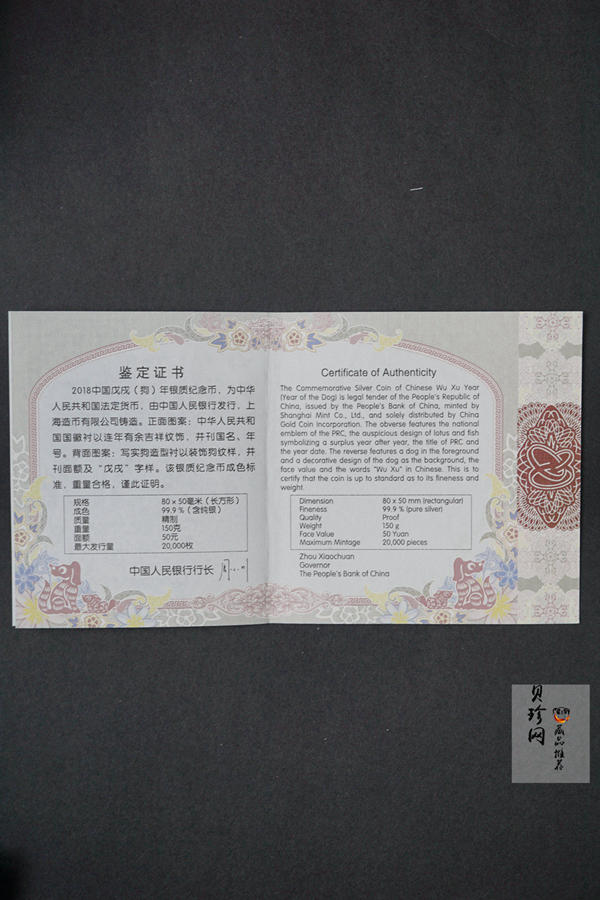 鉴定证书
2018中国戊戌（狗）年银质纪念币，为中华
人民共和国法定货币，由中国人民银行发行，上
海造币有限公司铸造。正面图案：中华人民共和
国国徽衬以连年有余吉祥纹饰，并刊国名、年
号。背面图案：写实狗造型衬以装饰狗纹样，并
刊面额及“戊戌”字样。该银质纪念币成色标
准，重量合格，谨此证明。
规格 80×50毫米（长方形）
成色 99.9％（含纯银）
质量 精制
重量 150克
面额 50元
最大发行量 20,000枚
中国人民银行行长
Certificate of Authenticity
The Commemorative Silver Coin of Chinese Wu Xu Year
(Year of the Dog) is legal tender of the People's Republic of
China, issued by the People's Bank of China, minted by
Shanghai Mint Co., Ltd., and solely distributed by China
Gold Coin Incorporation. The obverse features the national
emblem of the PRC, the auspicious design of lotus and fish
symbolizing a surplus year after year, the title of PRC and
the year date. The reverse features a dog in the foreground
and a decorative design of the dog as the background, the
face value and the words "Wu Xu" in Chinese. This is to
certify that the coin is up to standard as to its fineness and
weight.
Dimension 80 x 50 mm (rectangular)
Fineness 99.9 % (pure silver)
Quality Proof
Weight 150 g
Face Value 50 Yuan
Maximum Mintage 20,000 pieces
Zhou Xiaochuan
Governor
The People's Bank of China
贝珍网
藏品推荐